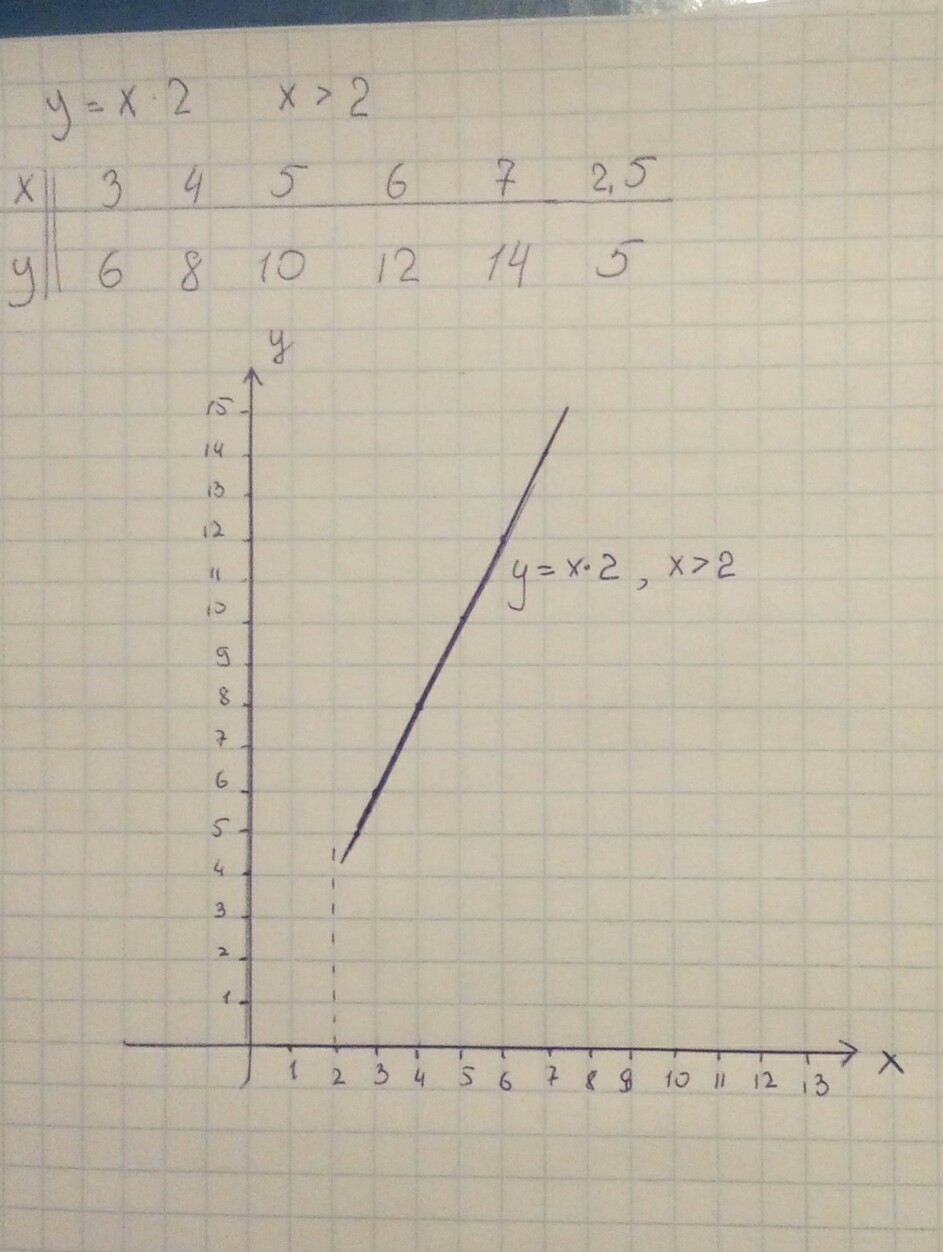 y = x · 2 x > 2
x 3 4 5 6 7 2,5
y 6 8 10 12 14 5
y
15
14
13
12
y = x · 2 , x > 2
11
10
9
8
7
6
5
4
3
2
1
x
1 2 3 4 5 6 7 8 9 10 11 12 13